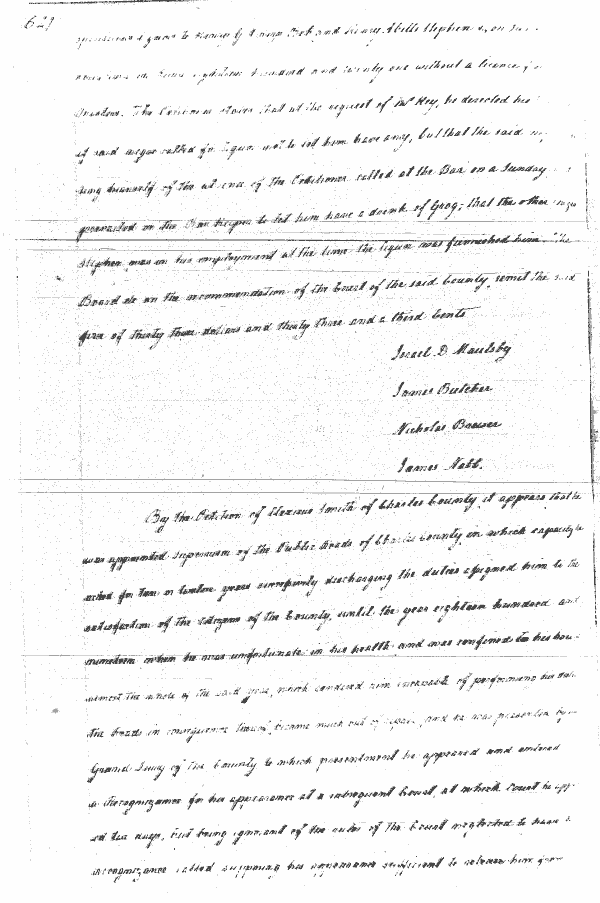 621
spirituous liquor to Negroes
one in the year eighteen hundred and twenty one without a licence
The Petitioner states that at the request of Mr Key, he directed his
if said negro called for liquor not to let him have any, but that the said
himself of the absence of the Petitioner called at the Bar on a Sunday
prevailed on the Bar keeper to let him have a drink of Grog; that the other negro
Stephen was in his employment at the time the liquor was furnished him The
Board do on the recommendation of the Court of the said County, remit the said
fine of thirty three dollars and thirty three and a third Cents
Israel D. Maulsby
James Butcher
Nicholas Brewer
James Nabb.
By the Petition of Smith of Charles County it appears that he
was appointed supervisor of the Public Roads of Charles County, in which capacity he
acted for ten or twelve years discharging the duties assigned him to the
satisfaction of the citizens of the County, until the year eighteen hundred and
nineteen when he was unfortunate in his health and was confined to his hou
almost the whole of the said year, which rendered him incapable of performing his
the Roads in consequence thereof became much out of repair, and he was presented by
Grand Jury of the County to which presentment he appeared and entered
a Recognizance for his appearance at a subsequent Court, at which Court he app
ed but being ignorant of the rules of the Court neglected to have
recognizance called supposing his appearance sufficient to release him from